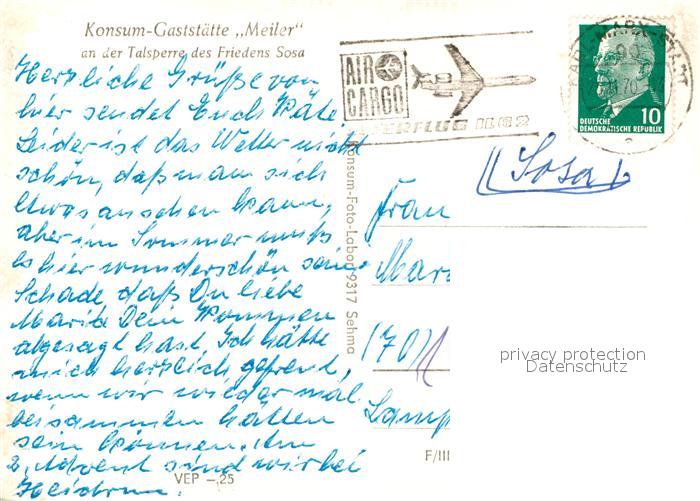 Konsum-Gaststätte „Meiler"
an der Talsperre des Friedens Sosa
Herzliche Grüße von
hier sendet Euch Käte.
Leider ist das Wetter nicht
schön, daß man sich
etwas ansehen kann,
aber im Sommer muß
es hier wunderschön sein.
Schade daß Du liebe
Marita Dein Kommen
abgesagt hast. Ich hätte
mich herzlich gefreut,
wenn wir wieder mal
beisammen hätten
sein können. Am
2. Advent sind wir bei
Heidrun.
VEP –,25
Konsum-Foto-Labor 9317 Sehma
F/III
AIR
CARGO
INTERFLUG IL 62
KARL-MARX-STADT
70
10
DEUTSCHE
DEMOKRATISCHE REPUBLIK
(Sosa)
Frau
Mar
(701
Lamp
privacy protection
Datenschutz